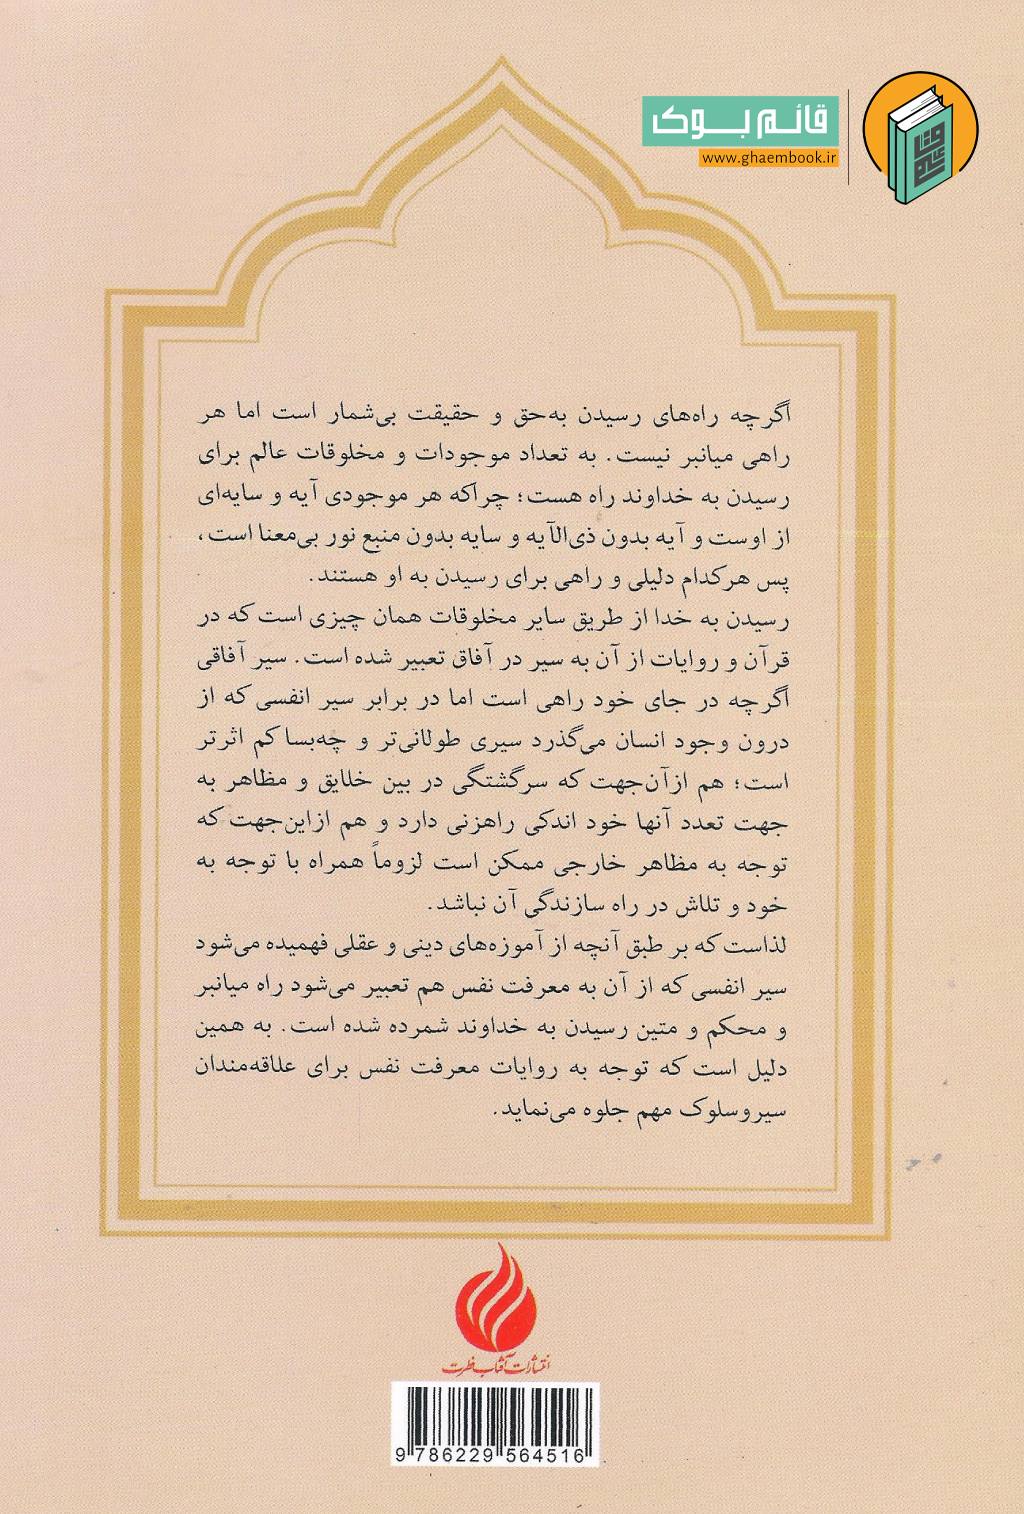 قائم بوک
www.ghaembook.ir
اگرچه راه‌های رسیدن به‌حق و حقیقت بی‌شمار است اما هر
راهی میانبر نیست. به تعداد موجودات و مخلوقات عالم برای
رسیدن به خداوند راه هست؛ چراکه هر موجودی آیه و سایه‌ای
از اوست و آیه بدون ذی‌الآیه و سایه بدون منبع نور بی‌معنا است،
پس هرکدام دلیلی و راهی برای رسیدن به او هستند.
رسیدن به خدا از طریق سایر مخلوقات همان چیزی است که در
قرآن و روایات از آن به سیر در آفاق تعبیر شده است. سیر آفاقی
اگرچه در جای خود راهی است اما در برابر سیر انفسی که از
درون وجود انسان می‌گذرد سیری طولانی‌تر و چه‌بسا کم اثرتر
است؛ هم ازآن‌جهت که سرگشتگی در بین خلایق و مظاهر به
جهت تعدد آنها خود اندکی راهزنی دارد و هم ازاین‌جهت که
توجه به مظاهر خارجی ممکن است لزوماً همراه با توجه به
خود و تلاش در راه سازندگی آن نباشد.
لذاست که بر طبق آنچه از آموزه‌های دینی و عقلی فهمیده می‌شود
سیر انفسی که از آن به معرفت نفس هم تعبیر می‌شود راه میانبر
و محکم و متین رسیدن به خداوند شمرده شده است. به همین
دلیل است که توجه به روایات معرفت نفس برای علاقه‌مندان
سیروسلوک مهم جلوه می‌نماید.
انتشارات آفتاب فطرت
9 786229 564516